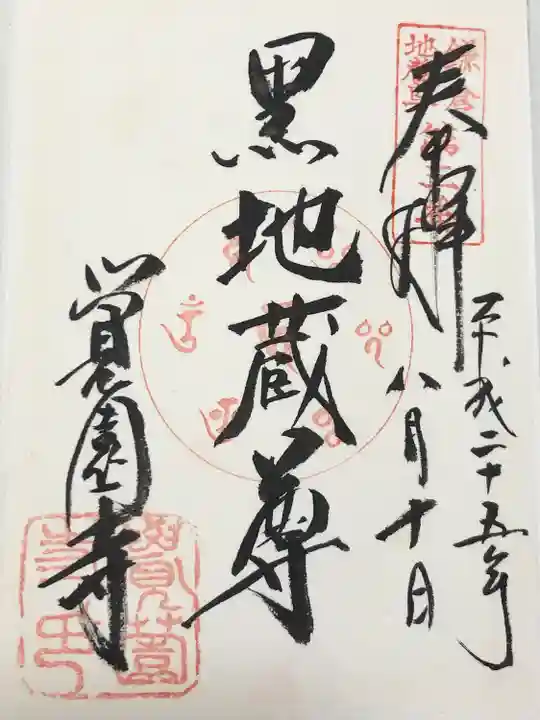 奉拝
平成二十五年
八月十日
黒地蔵尊
覚園寺
鎌倉
地蔵尊